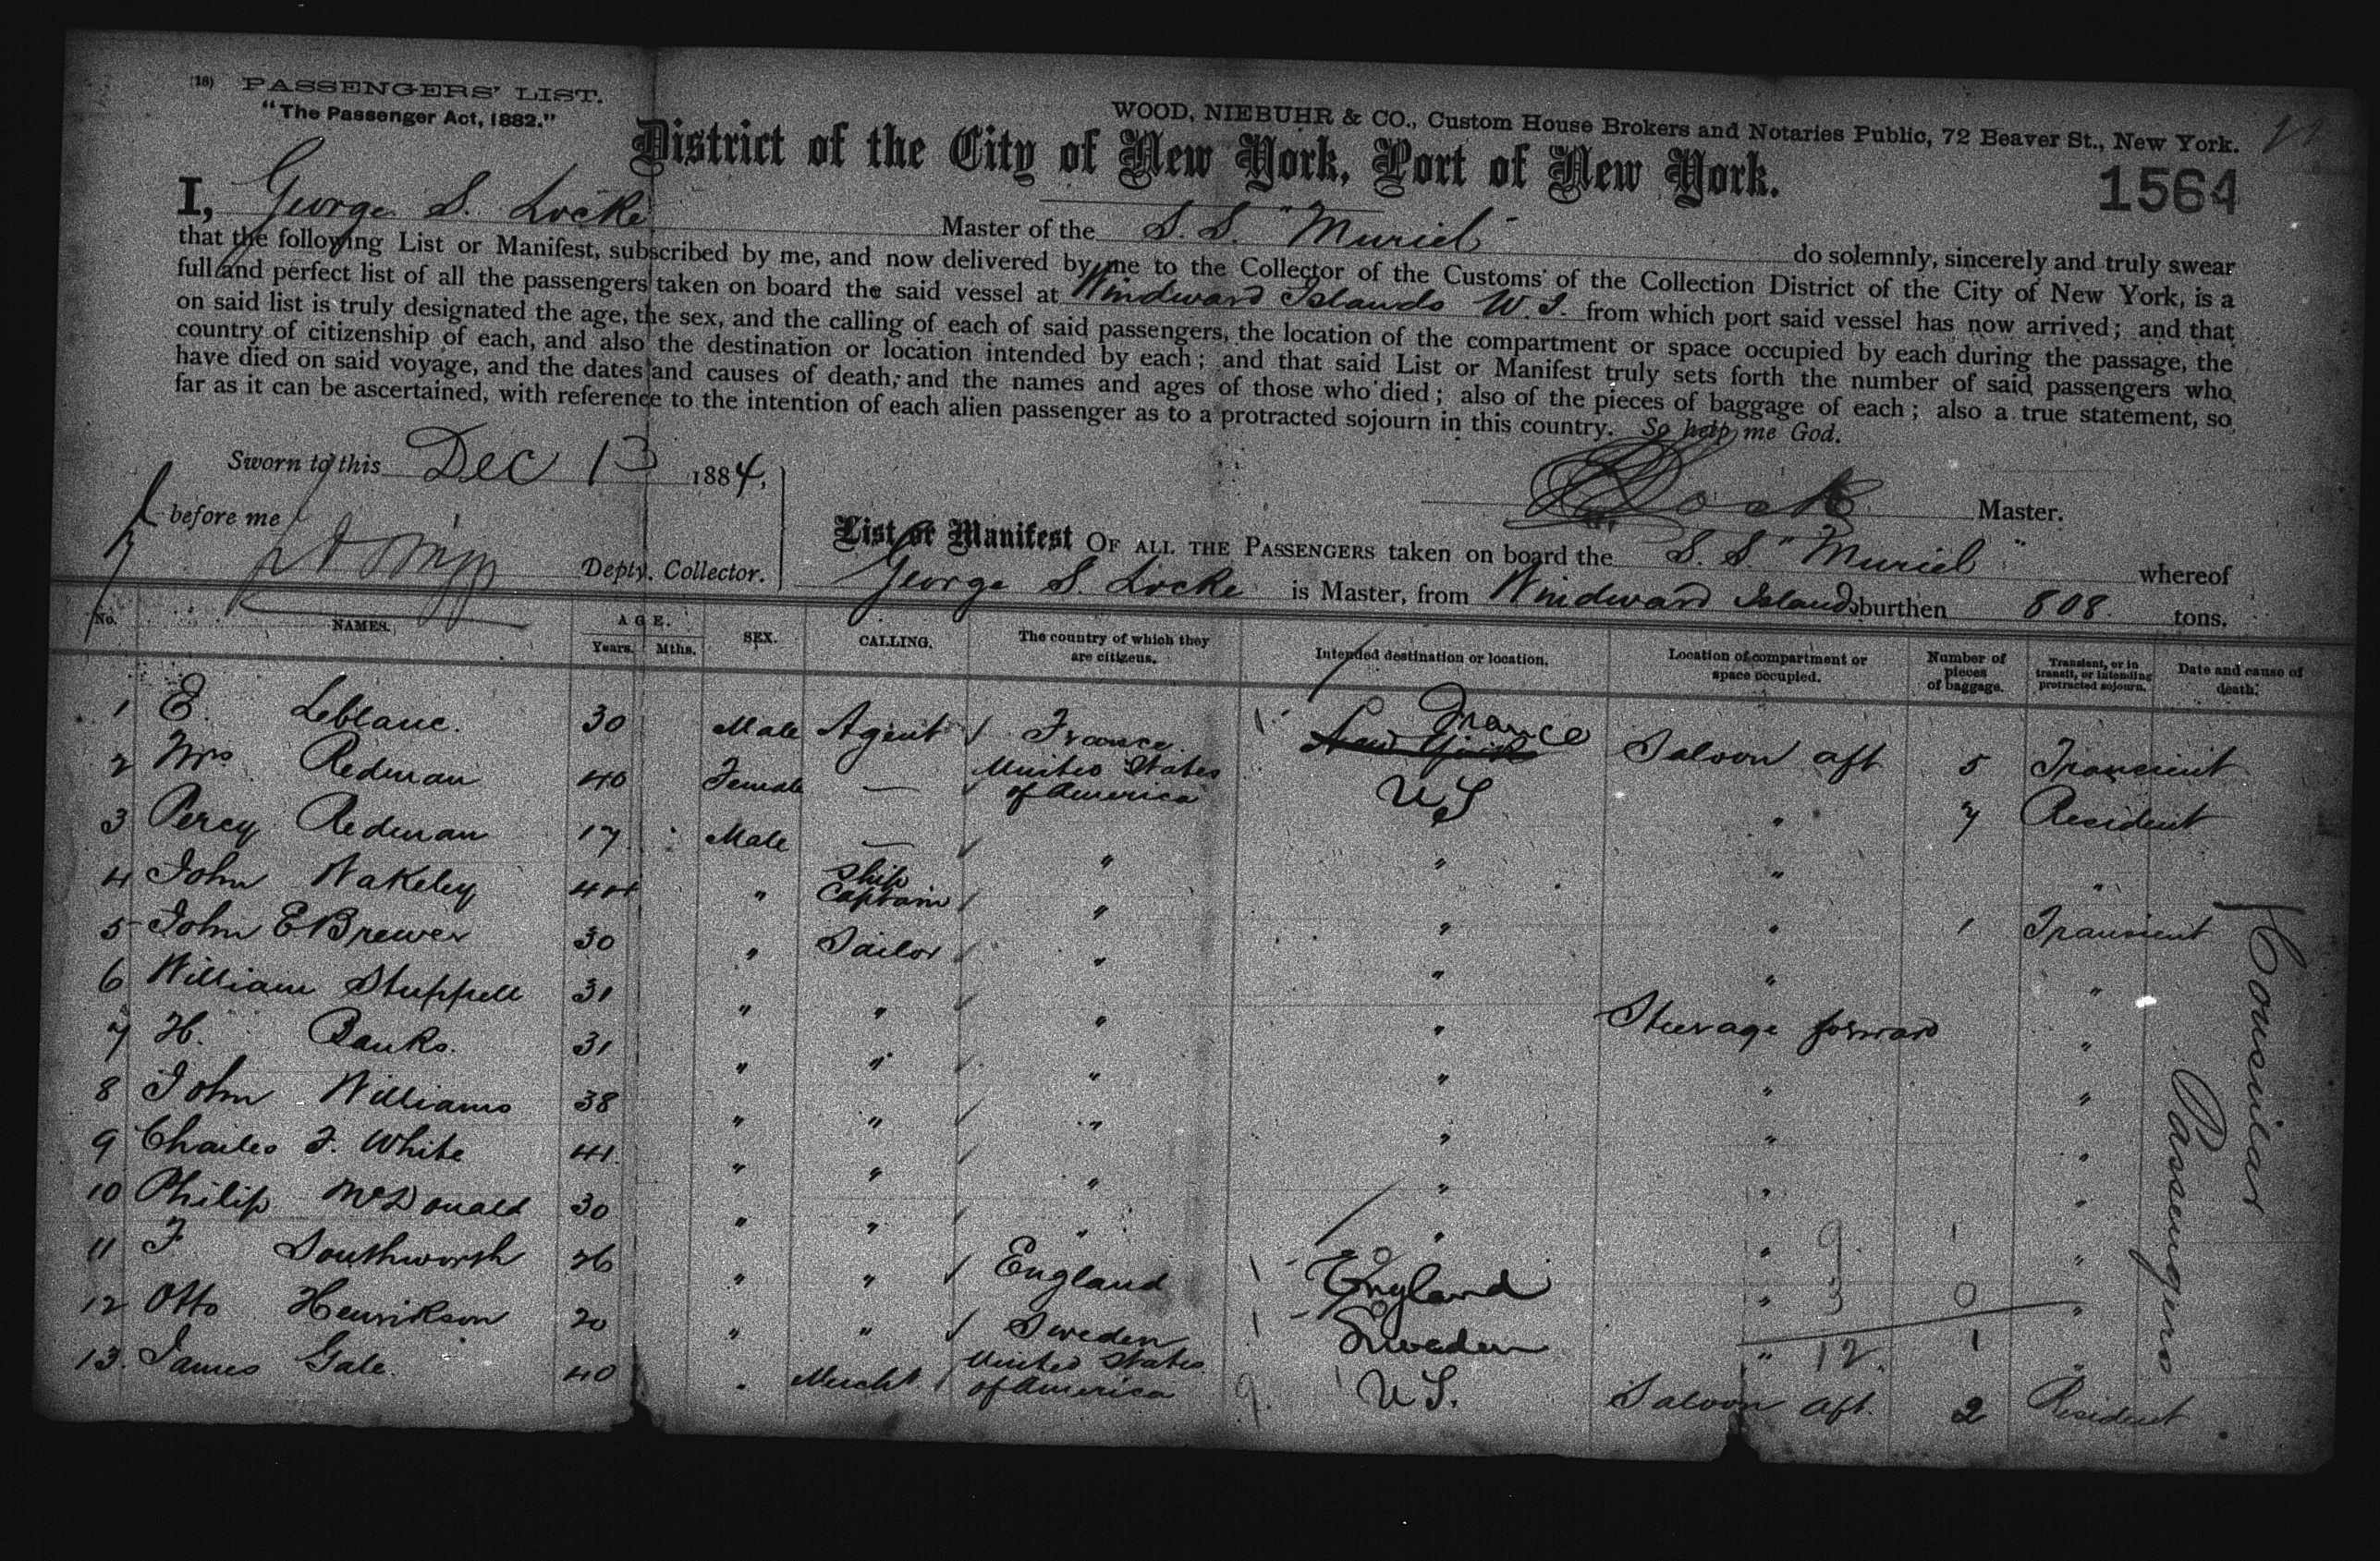 (18) PASSENGERS' LIST.
"The Passenger Act, 1882."
WOOD, NIEBUHR & CO., Custom House Brokers and Notaries Public, 72 Beaver St., New York.
District of the City of New York, Port of New York.
1564
I, George S. Locke Master of the S. S. "Muriel" do solemnly, sincerely and truly swear
that the following List or Manifest, subscribed by me, and now delivered by me to the Collector of the Customs of the Collection District of the City of New York, is a
full and perfect list of all the passengers taken on board the said vessel at Windward Islands W. I. from which port said vessel has now arrived; and that
on said list is truly designated the age, the sex, and the calling of each of said passengers, the location of the compartment or space occupied by each during the passage, the
country of citizenship of each, and also the destination or location intended by each; and that said List or Manifest truly sets forth the number of said passengers who
have died on said voyage, and the dates and causes of death, and the names and ages of those who died; also of the pieces of baggage of each; also a true statement, so
far as it can be ascertained, with reference to the intention of each alien passenger as to a protracted sojourn in this country. So help me God.
Sworn to this Dec 13 1884,
Master.
before me
Depty. Collector.
List or Manifest OF ALL THE PASSENGERS taken on board the S. S. "Muriel" whereof
George S. Locke is Master, from Windward Islands burthen 808 tons.
No. NAMES. AGE. Years. Mths. SEX. CALLING. The country of which they are citizens. Intended destination or location. Location of compartment or space occupied. Number of pieces of baggage. Transient, or in transit, or intending protracted sojourn. Date and cause of death.
1 E. Leblanc. 30 Male Agent France. New York France Saloon aft 5 Transient
2 Mrs Redman 40 Female — United States of America U S " 7 Resident
3 Percy Redman 17 Male — " " " "
4 John Wakeley 44 " Ship Captain " " " 1 Transient
5 John E Brewer 30 " Sailor " " " "
6 William Stuppell 31 " " " " Steerage forward "
7 H. Banks. 31 " " " " " "
8 John Williams 38 " " " " " "
9 Charles F. White 41 " " " " " "
10 Philip McDonald 30 " " " " " "
11 F Southworth 26 " " England England " "
12 Otto Henrikson 20 " " Sweden Sweden " "
13. James Gale. 40 " Mercht United States of America U S. Saloon aft. 2 Resident
9 1
3 0
12. 1
Consular
Passengers